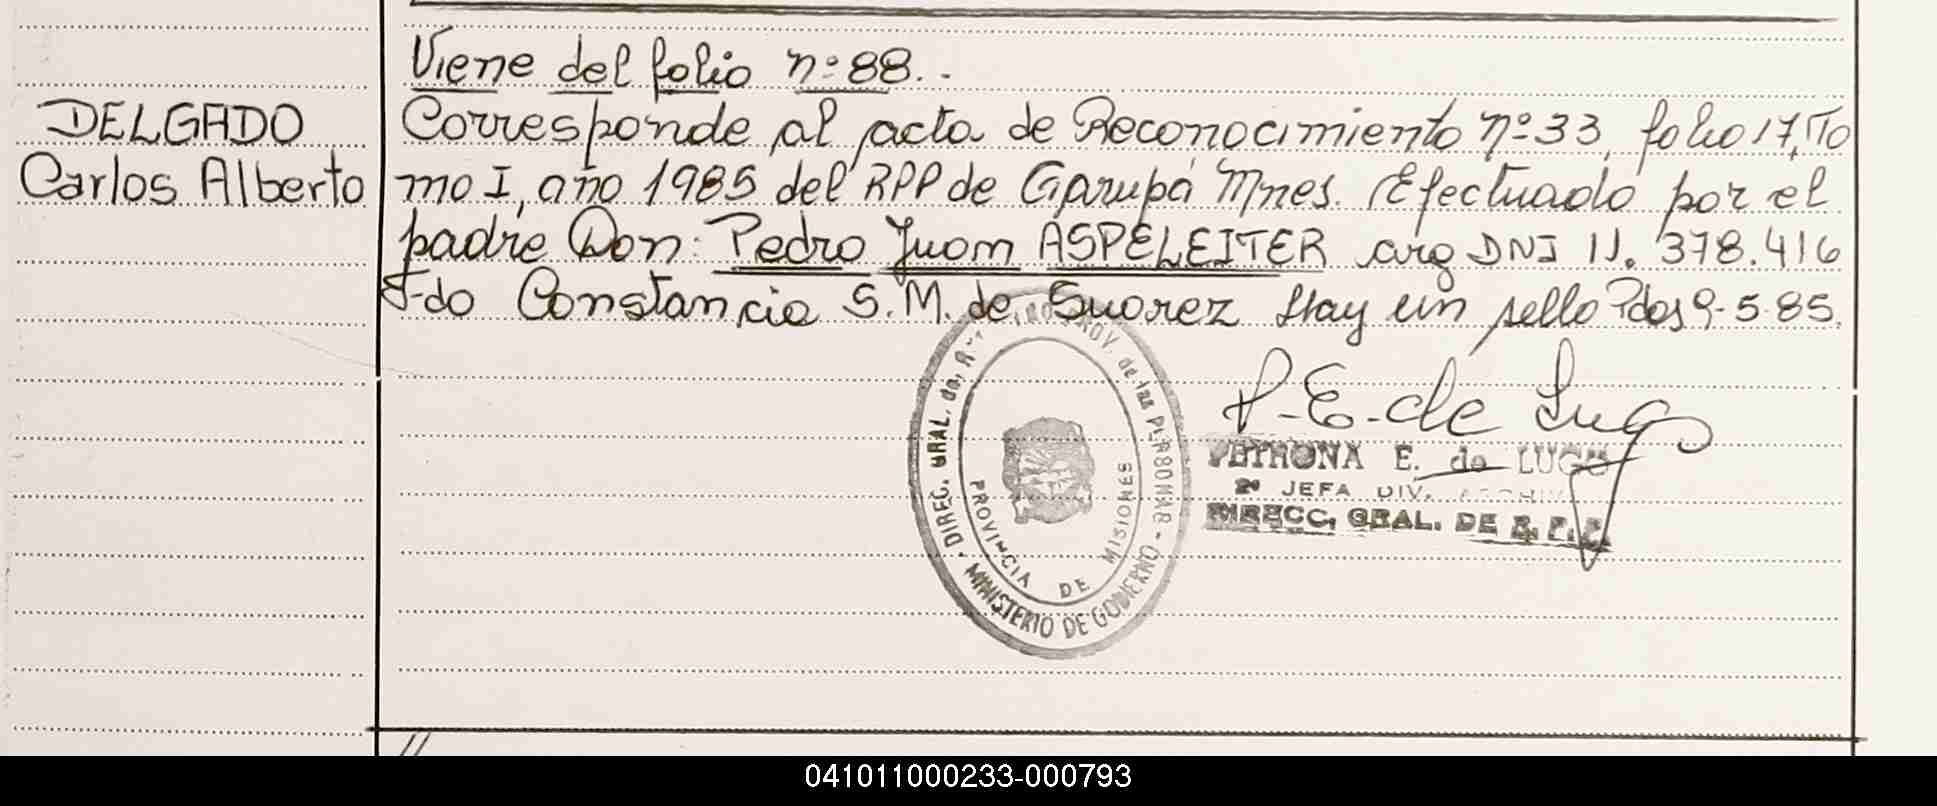 Viene del folio nº 88..
DELGADO
Carlos Alberto
Corresponde al acta de Reconocimiento nº 33, folio 17, To
mo I, año 1985 del RPP de Garupá Mnes. Efectuado por el
padre Don: Pedro Juan ASPELEITER arg DNI 11.378.416
Fdo Constancia S.M. de Suarez Hay un sello Pdas 9-5-85.
P.E. de Lugo
PETRONA E. de LUGO
2º JEFA DIV. ARCHIVO
DIRECC. GRAL. DE R. P. P.
DIREC. GRAL. de. PROV. de las PERSONAS - MINISTERIO DE GOBIERNO
PROVINCIA DE MISIONES
041011000233-000793